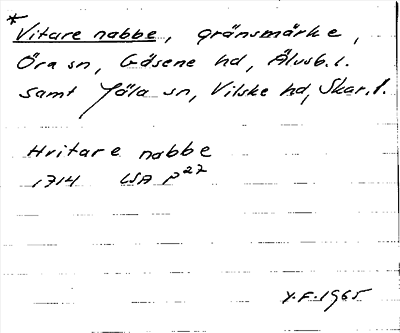 * Vitare nabbe, gränsmärke,
Öra sn, Gäsene hd, Älvsb. l.
samt Jäla sn, Vilske hd, Skar. l.
Hvitare nabbe
1714 LSA P27
Y.F. 1965